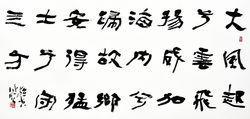 大風起
兮雲飛
揚威加
海内兮
歸故鄉
安得猛
士兮守
亖方